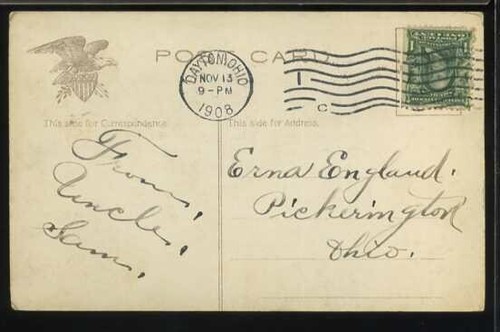 POST CARD
DAYTON, OHIO
NOV 13
9-PM
1908
1
C
This side for Correspondence.
This side for Address.
From,
Uncle,
Sam,
Erna England.
Pickerington
Ohio.